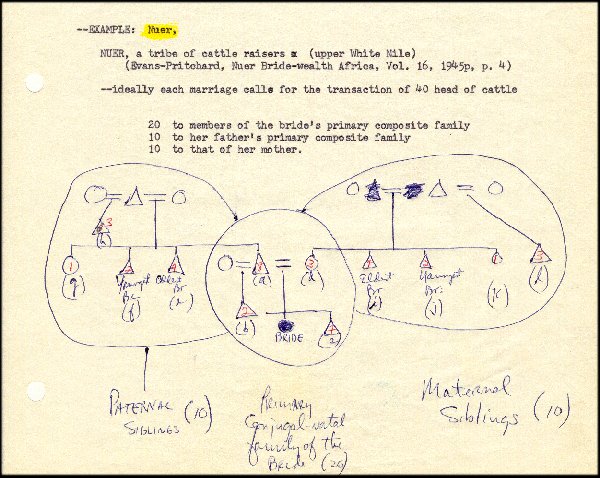 --EXAMPLE: Nuer,
NUER, a tribe of cattle raisers x (upper White Nile)
(Evans-Pritchard, Nuer Bride-wealth Africa, Vol. 16, 1945p, p. 4)
--ideally each marriage calls for the transaction of 40 head of cattle
20 to members of the bride's primary composite family
10 to her father's primary composite family
10 to that of her mother.
3
(h)
1
8
3
(g)
Youngest
Br.
(f)
Eldest
Br
(e)
(a)
(d)
Eldest
Br
(i)
Youngest
Br.
(j)
(k)
(l)
2
(b)
BRIDE
7
PATERNAL (10)
SIBLINGS
Primary
Conjugal-natal
family of the
Bride (20)
Maternal
Siblings (10)